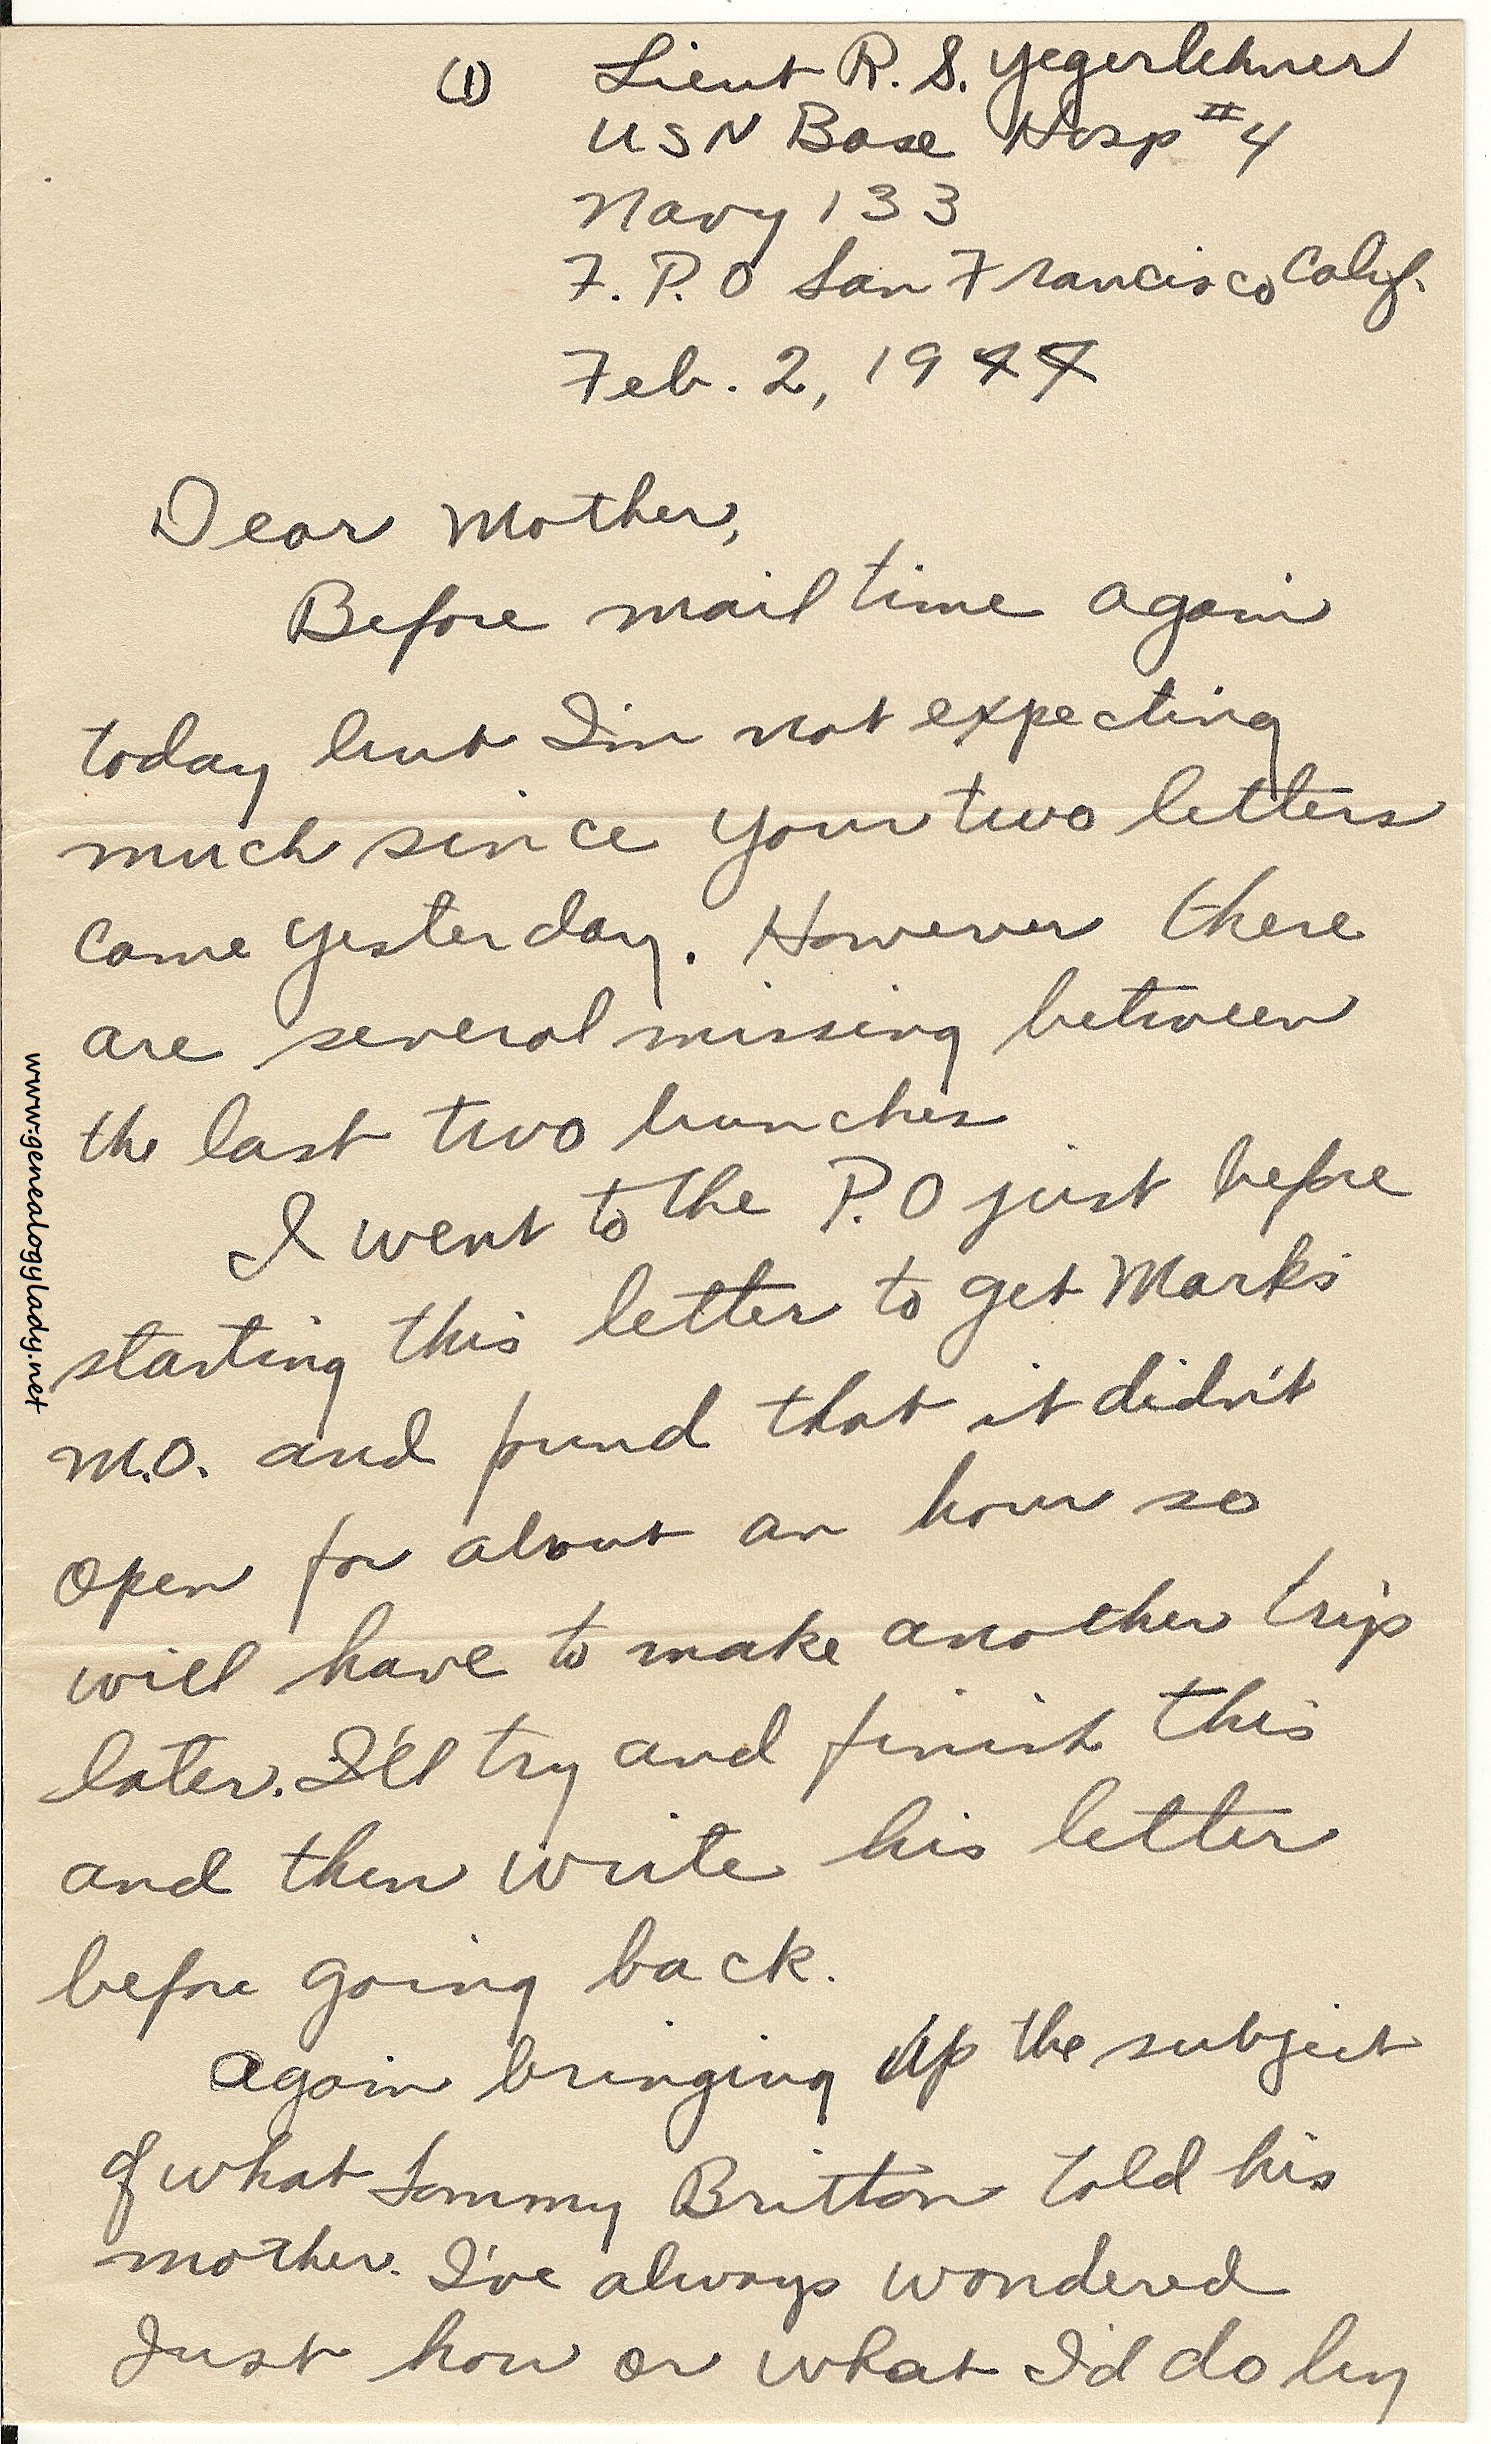 (1) Lieut R. S. Yegerlehner
USN Base Hosp #4
Navy 133
F. P. O San Francisco Calif.
Feb. 2, 1944
Dear Mother,
Before mail time again
today but I'm not expecting
much since your two letters
came yesterday. However there
are several missing between
the last two bunches
I went to the P.O just before
starting this letter to get Mark's
M.O. and found that it didn't
open for about an hour so
will have to make another trip
later. I'll try and finish this
and then write his letter
before going back.
Again bringing up the subject
of what Sammy Britton told his
mother. I've always wondered
Just how or what I'd do by
www.genealogylady.net